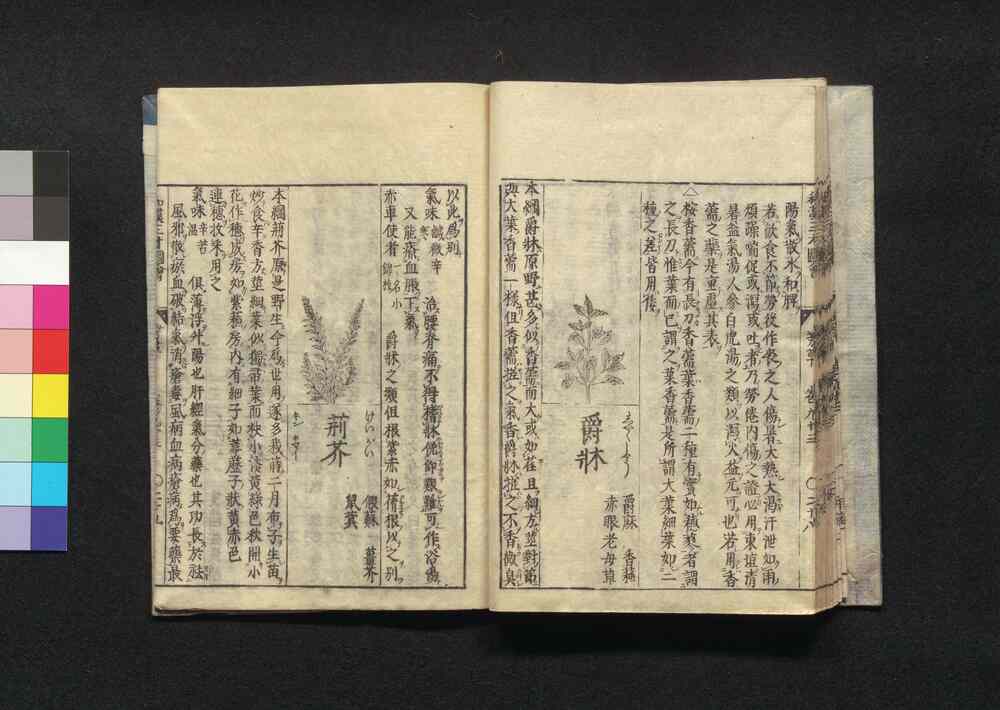 陽氣散水和脾
若飲食不節勞役作喪之人傷暑大熱大渴汗泄如雨
煩躁喘促或瀉或吐者乃勞倦內傷之證必用東垣清
暑益氣湯人參白虎湯之類以瀉火益元可也若用香
薷之藥是重虛其表
△按香薷今有長刀香薷葉香薷二種有實如穗蓼者謂
之長刀惟葉而已謂之葉香薷是所謂大葉細葉如二
種之差皆用陰
爵牀
爵麻 香蘇
赤眼老母草
本綱爵牀原野甚多似香薷而大或如荏且細方莖對節
與大葉香薷一樣但香薷搓之氣香爵牀搓之不香微臭
以此爲別
氣味鹹微辛寒 治腰脊痛不得着牀俛仰艱難可作浴湯
又能療血脹下氣
赤車使者 一名小錦枝 爵牀之類但根紫赤如蒨根以之別
荊芥
けいがい
假蘇 薑芥
鼠蓂
本綱荊芥原是野生今爲世用遂多栽蒔二月布子生苗
炒食辛香方莖細葉似獨帚葉而狹小淡黃綠色秋開小
花作穗成房如紫蘇房內有細子如葶藶子狀黃赤色
連穗收采用之
氣味辛苦溫 俱薄浮升陽也肝經氣分藥也其功長於祛
風邪散瘀血破結氣消瘡毒風病血病瘡病爲要藥最